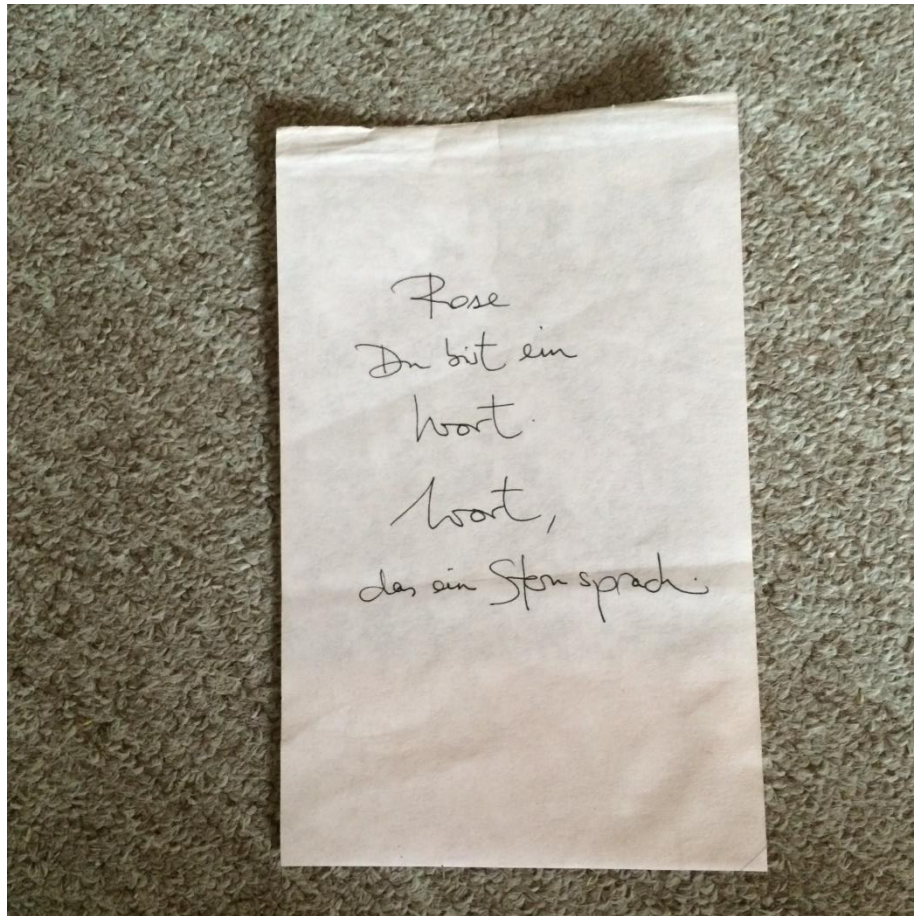 Rose
Du bist ein
Wort.
Wort,
das ein Stern sprach.